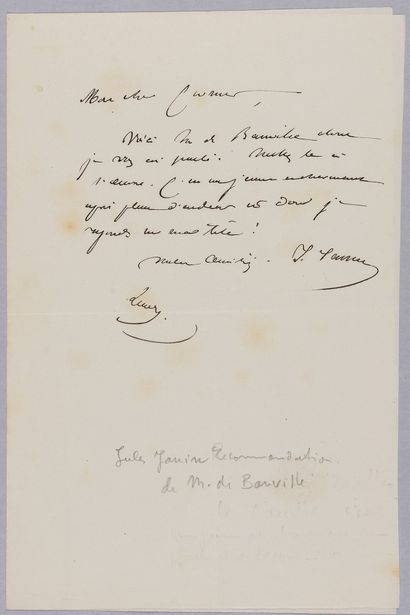 Mon cher Curmer,
Voici M. de Banville dont
je vous ai parlé. Mettez le à
l'œuvre. C'est un jeune
esprit plein d'ardeur et dont je
réponds sur ma tête !
J. Janin
Lundi
Jules Janin Recommandation
de M. de Banville